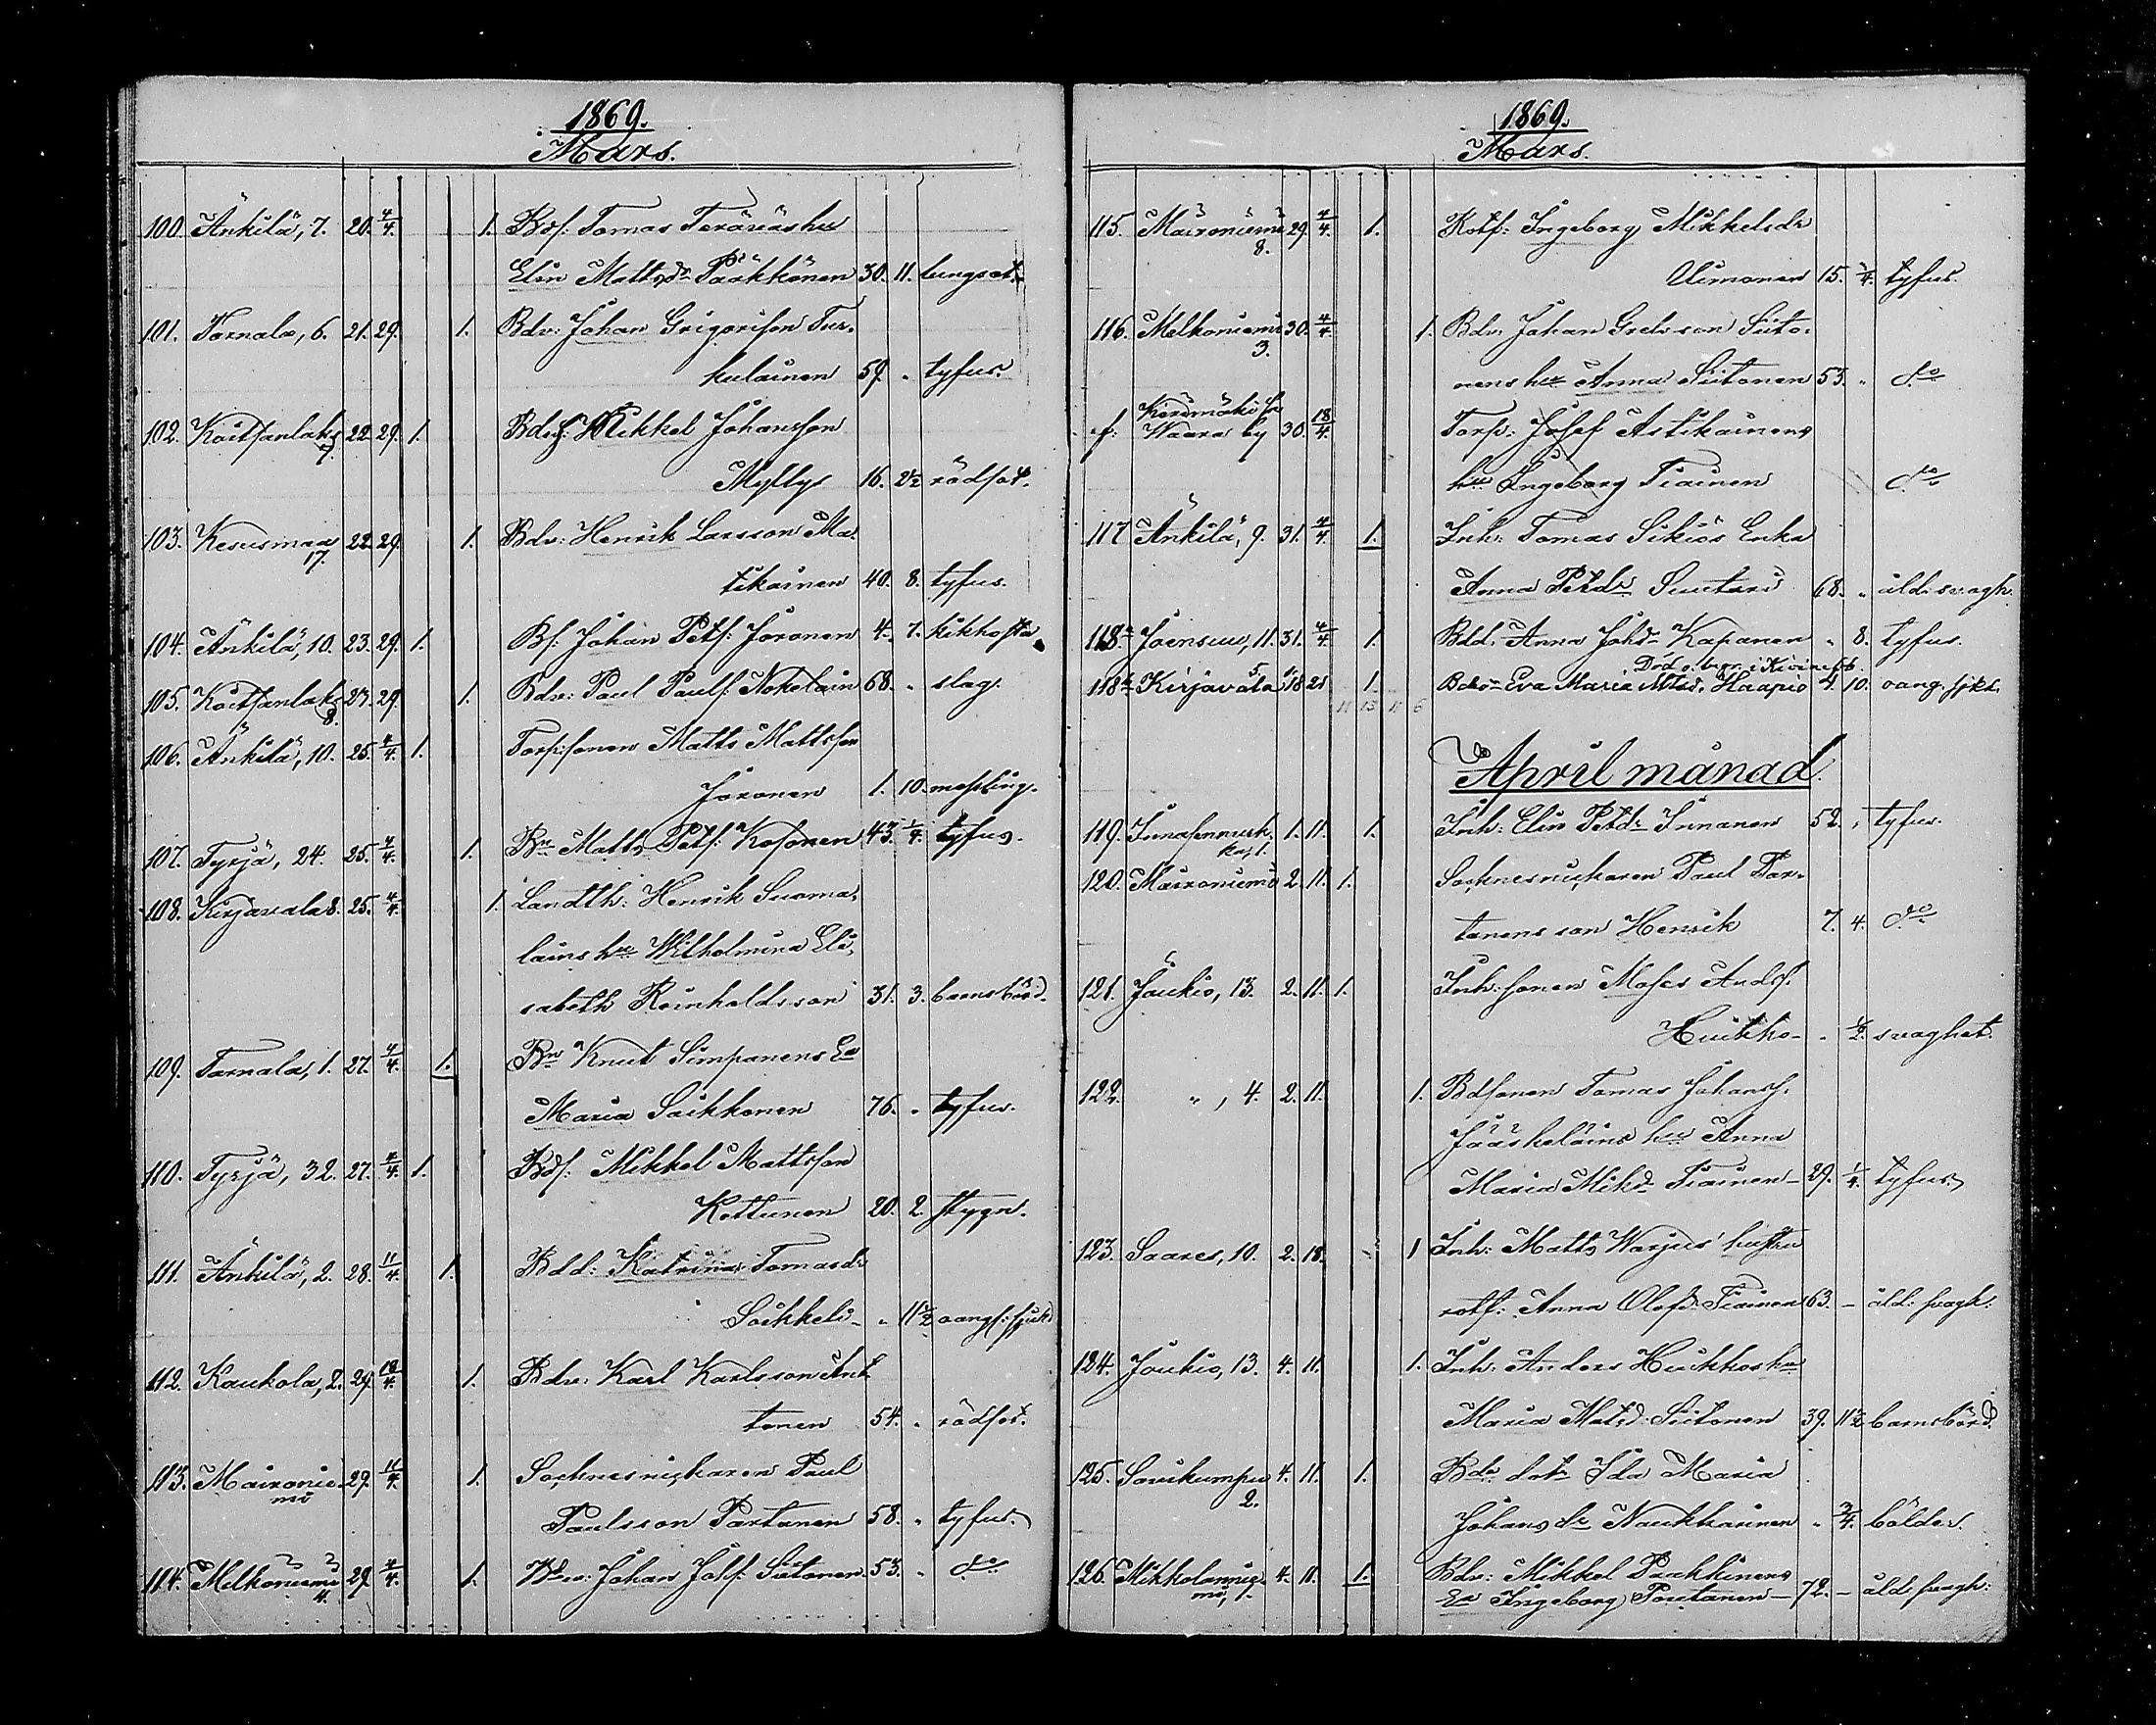 1869.
Mars.
100. Änkilä, 7. 20. 4/4. 1. Bdf: Tomas Teräväs hu
Elin Mattsdr Pääkkönen 30. 11. lungsot.
101. Tornala, 6. 21. 29. 1. Bdv: Johan Grigorison Tur-
kulainen 59. " tyfus.
102. Koitsanlaks 7. 22. 29. 1. Mikkel Johansson
Myllys 16. 2 1/2 rödsot.
103. Kesusmaa 17. 22. 29. 1. Bdv: Henrik Larsson Ma-
tikainen 40. 8. tyfus.
104. Änkilä, 10. 23. 29. 1. Bf: Johan Petf: Joronen 4. 7. kikhosta
105. Koitsanlaks 8. 23. 29. 1. Bdv: Paul Paulf: Nokelain 68. " slag.
106. Änkilä, 10. 25. 4/4. 1. Torp:sonen Matts Mattsson
Joronen 1. 10. messling.
107. Tyrjä, 24. 25. 4/4. 1. Bn Matts Petf: Kosonen 43. 1/4. tyfus.
108. Kirjavala 8. 25. 4/4. 1. Landth: Henrik Suoma-
lains hu Wilhelmina Eli-
sabeth Reinholdsson 31. 3. barnsbörd.
109. Tarnala, 1. 27. 4/4. 1. Bn Knut Simpanens Ea
Maria Saikkonen 76. " tyfus.
110. Tyrjä, 32. 27. 4/4. 1. Bdf: Mikkel Mattsson
Kottunen 20. 2. stygn.
111. Änkilä, 2. 28. 11/4. 1. Bdd: Katrina Tomasdr
Sokkeli - " 11 1/2
112. Kaukola, 2. 29. 18/4. 1. Bdv: Karl Karlsson Ant-
tonen 54. " rödsot.
113. Maironie-
mi 29. 11/4. 1. Socknesnickaren Paul
Paulsson Partanen 58. " tyfus.
114. Melkoniemi 4. 29. 4/4. 1. Johan Johf: Siitonen 53. " do
1869.
Mars.
115. Maironiemi 8. 29. 4/4. 1. Rotf: Ingeborg Mikkelsdr
Uimonen 15. 1/4. tyfus.
116. Melkoniemi 3. 30. 4/4. 1. Bdv: Johan Grels son Siito-
nens hu Anna Siitonen 53. " do
Waara by 30. 18/4. Torp: Josef Astikainens
hu Ingeborg Tiainen do
117 Änkilä, 9. 31. 4/4. 1. Inh: Tomas Sikiös Enka
Anna Petdr Suutari 68. " åld. svagh.
118a Joensuu, 11. 31. 4/4. 1. Bdd: Anna Johdr Kapanen " 8. tyfus.
Död o. begr. i Kivineb.
118b Kirjavala 5. 18 21 1. Eva Maria Mtsd. Haapio 4. 10.
11 13 11 6
April månad.
119. 1. 11. 1. Inh: Elin Petdr Innanen 52. " tyfus.
120. Maironiemi 2. 11. 1. Socknesnickaren Paul Par-
tanens son Henrik 7. 4. do
121. Joukio, 13. 2. 11. 1. Inh: sonen Moses Andf.
Huikko - " 1/2. svaghet.
122. " , 4. 2. 11. 1. Bdsonen Tomas Johansf.
Jääskeläins hu Anna
Maria Mikdr Tiainen - 29. 1/4. tyfus.
123. Saares, 10. 2. 18. 1 Inh: Matts Warjus' hustru
rotf: Anna Olofdr Tiainen 63. - åld: svagh:
124. Joukio, 13. 4. 11. 1. Inh: Anders Huikkos hu
Maria Matsd: Siitonen 39. 11 1/2 barnsbörd.
125. Savikumpu 2. 4. 11. 1. dotr Ida Maria
Johansdr Naukkarinen " 3/4. bölder.
126. Mikkolannie-
mi, 1. 4. 11. 1. Bdv: Mikkel Paakkinens
Ea Ingeborg Poutanen - 72. - åld: svagh: